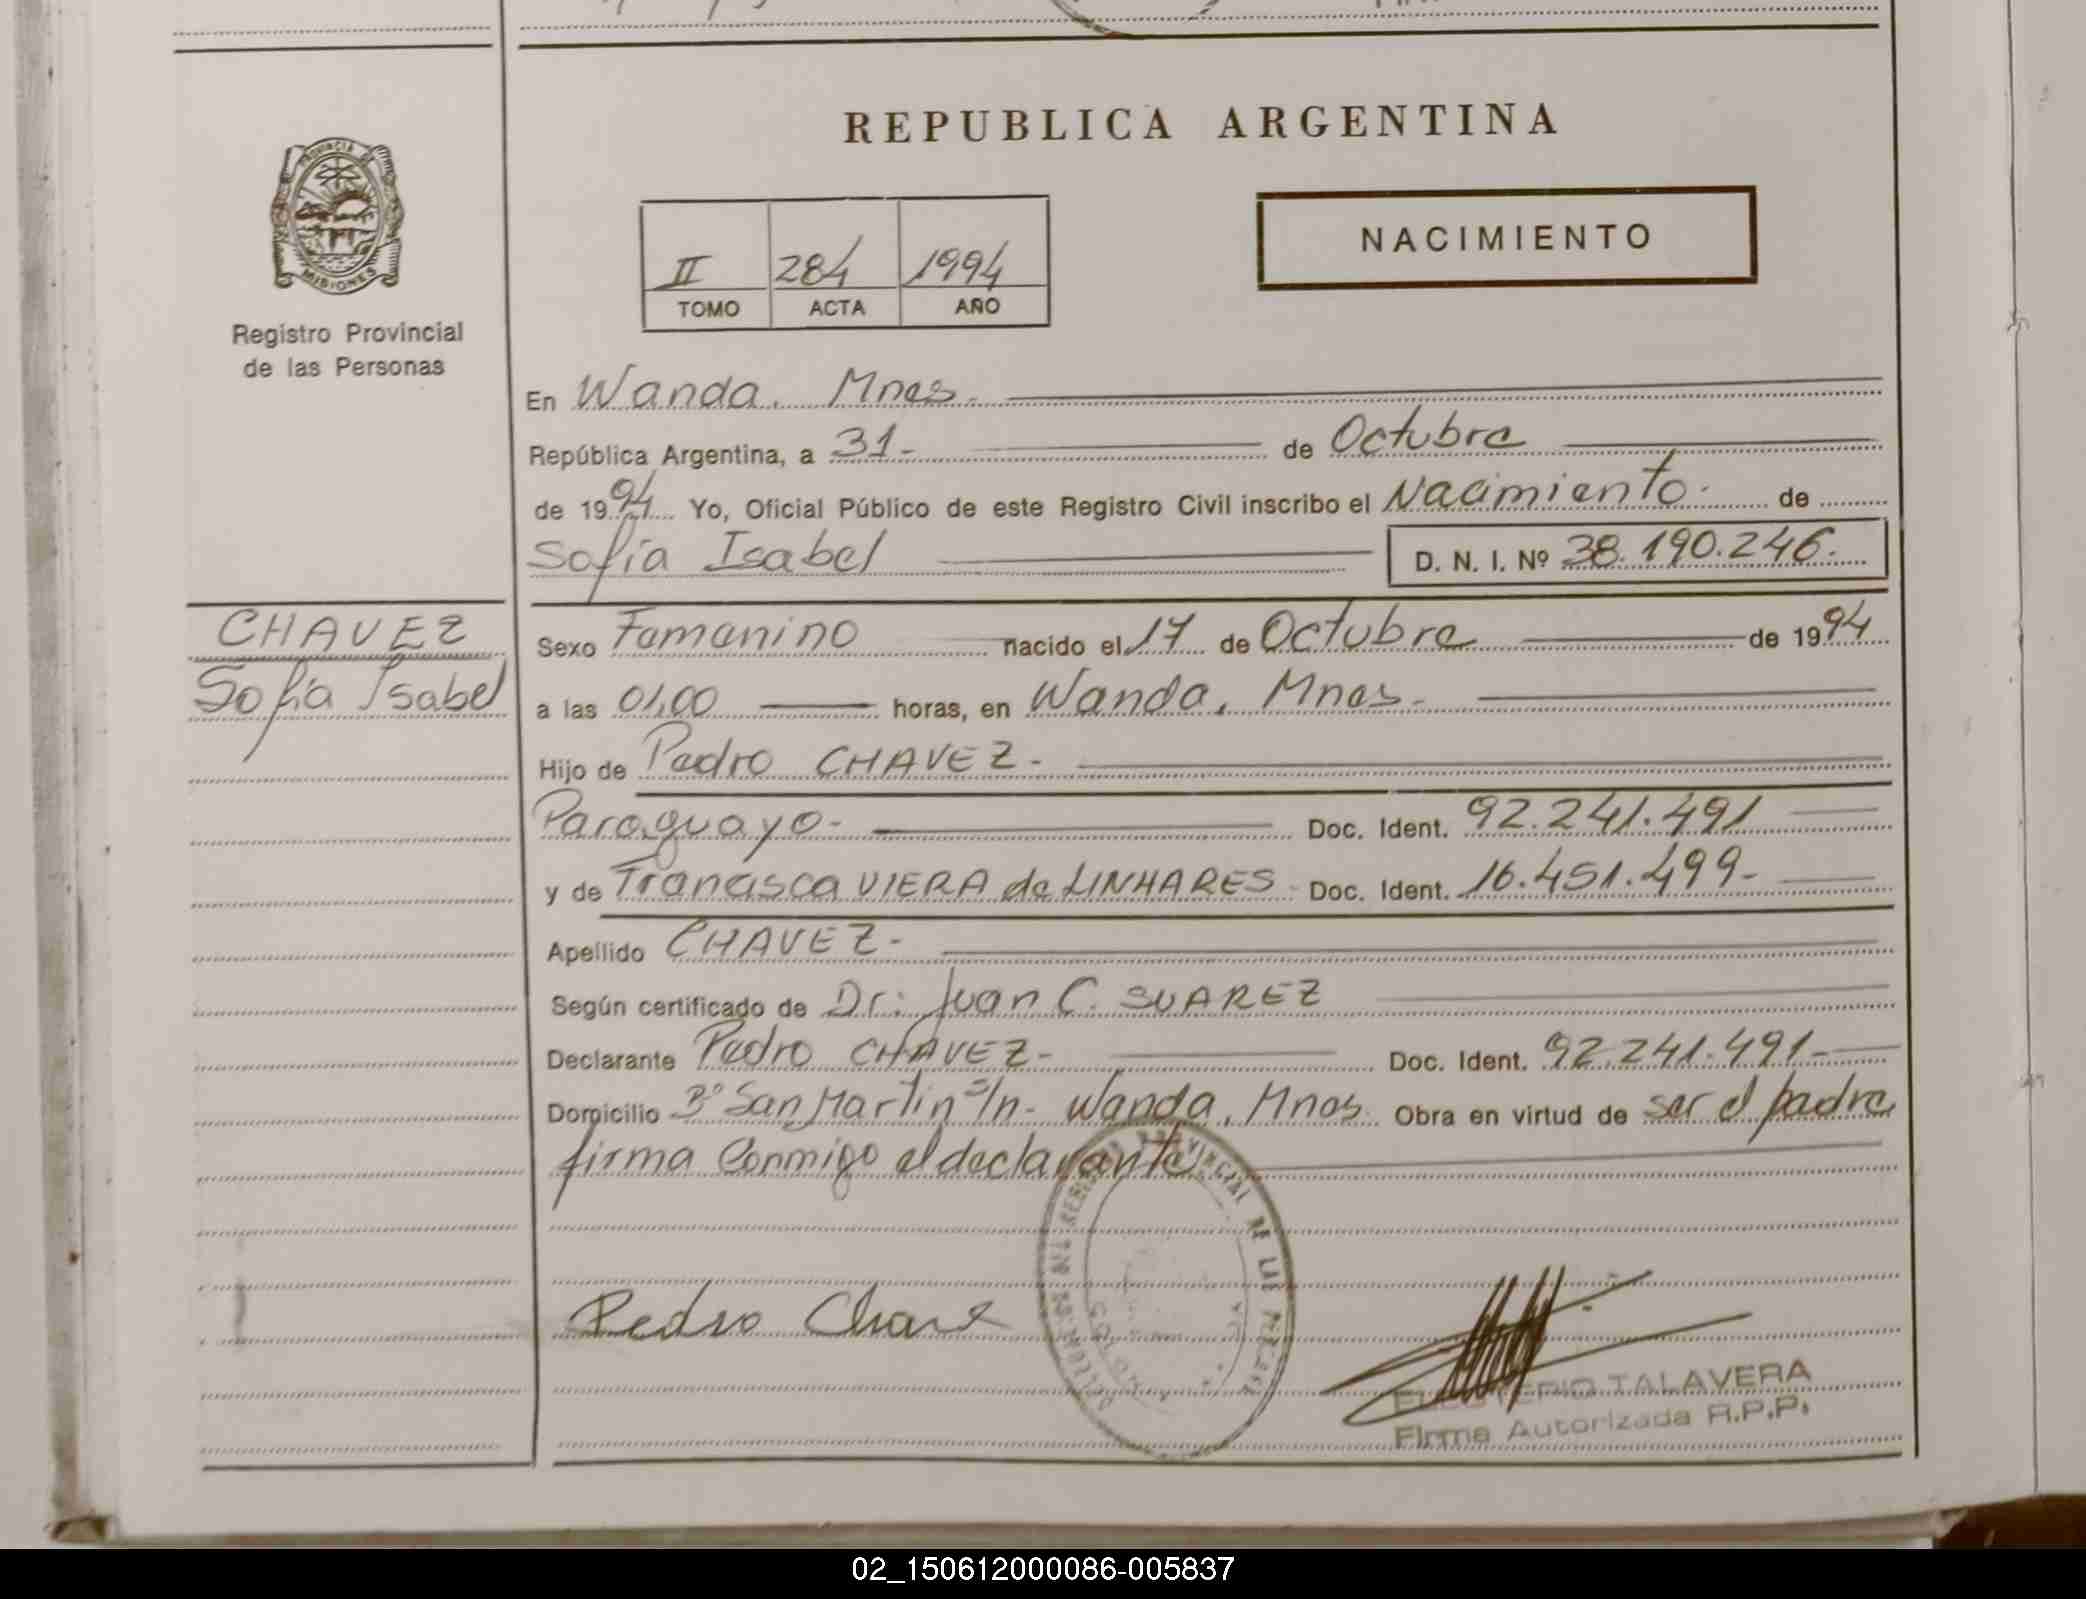 REPUBLICA ARGENTINA
PROVINCIA DE
MISIONES
Registro Provincial
de las Personas
II 284 1994
TOMO ACTA AÑO
NACIMIENTO
En Wanda. Mnes.
República Argentina, a 31- de Octubre
de 1994 Yo, Oficial Público de este Registro Civil inscribo el Nacimiento. de
Sofía Isabel D. N. I. Nº 38.190.246.
CHAVEZ
Sofía Isabel
Sexo Femenino nacido el 17 de Octubre de 1994
a las 01,00 horas, en Wanda, Mnes.
Hijo de Pedro CHAVEZ.
Paraguayo- Doc. Ident. 92.241.491
y de Francisca VIERA de LINHARES Doc. Ident. 16.451.499-
Apellido CHAVEZ-
Según certificado de Dr: Juan C. SUAREZ
Declarante Pedro CHAVEZ- Doc. Ident. 92.241.491-
Domicilio Bº San Martin s/n- Wanda, Mnes. Obra en virtud de ser el padre
firma Conmigo el declarante
Pedro Chavez
TALAVERA
Firma Autorizada R.P.P.
02_150612000086-005837